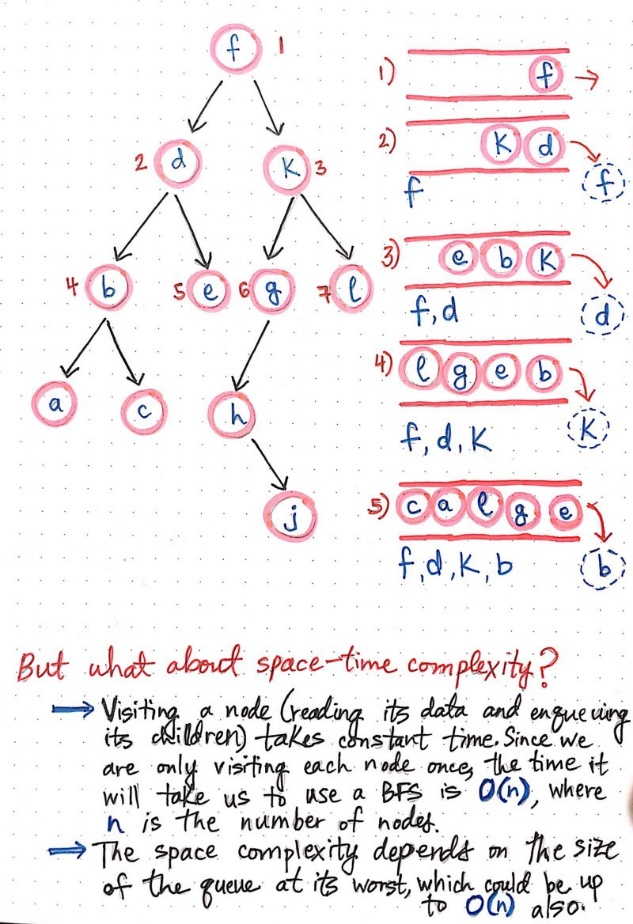 f 1
2 d K 3
4 b 5 e 6 g 7 l
a c h
j
1) f
2) K d
f f
3) e b K
f, d d
4) l g e b
f, d, K K
5) c a l g e
f, d, K, b b
But what about space-time complexity?
Visiting a node (reading its data and enqueuing
its children) takes constant time. Since we
are only visiting each node once, the time it
will take us to use a BFS is O(n), where
n is the number of nodes.
The space complexity depends on the size
of the queue at its worst, which could be up
to O(n) also.